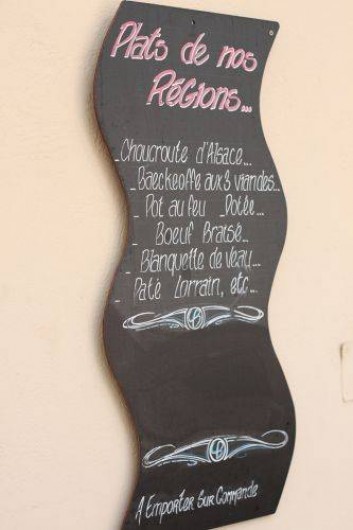 Plats de nos
Régions...
_Choucroute d'Alsace...
_Baeckeoffe aux 3 viandes...
_Pot au feu _Potée...
_Boeuf Braisé..
_Blanquette de veau...
_Paté Lorrain, etc...
A Emporter Sur Commande